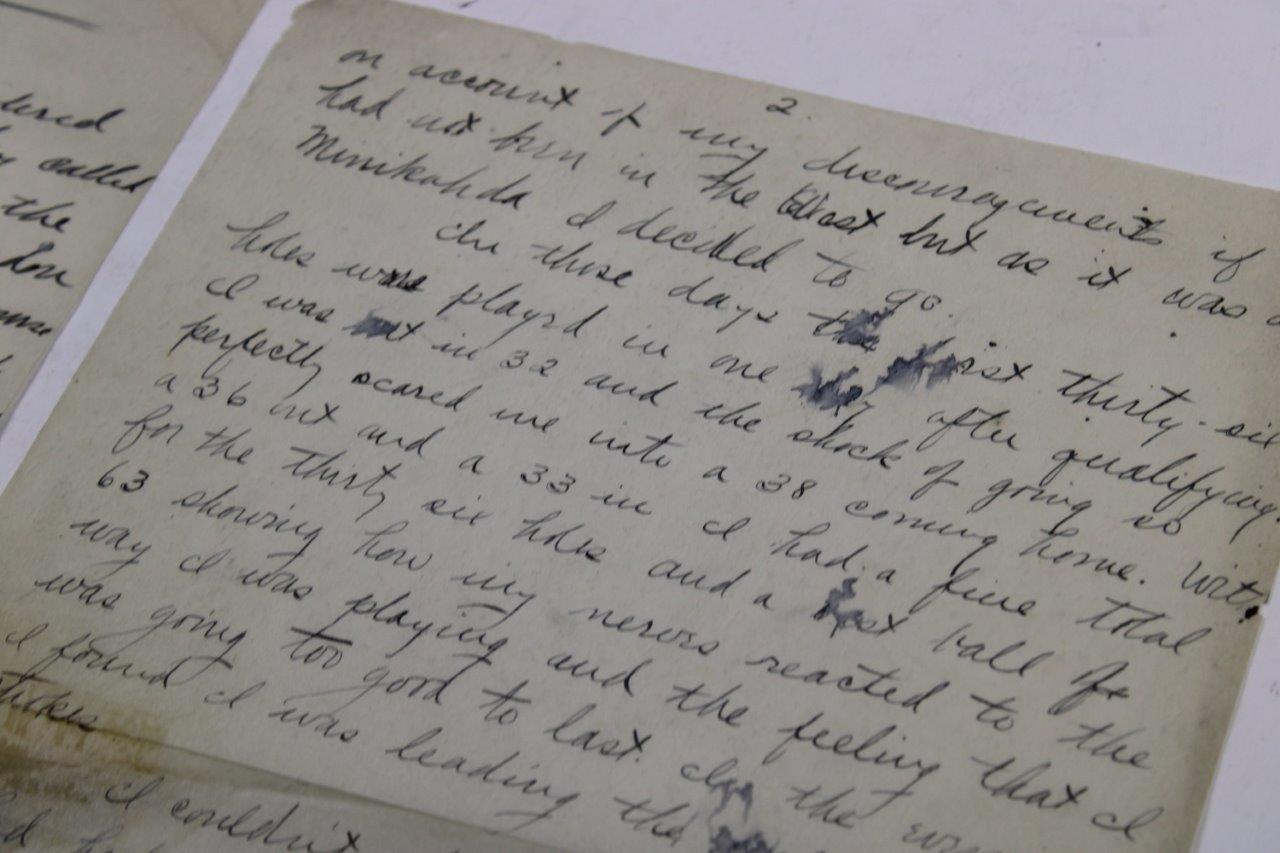 used
called
the
2.
on account of my discouragements if
had not been in the East but as it was
Minikahda I decided to go.
In those days the first thirty-six
holes were played in one after qualifying.
I was out in 32 and the shock of going so
perfectly scared me into a 38 coming home. With
a 36 out and a 33 in I had a fine total
for the thirty six holes and a best ball of
63 showing how my nerves reacted to the
way I was playing and the feeling that I
was going too good to last. In the
I found I was leading the
I couldn't